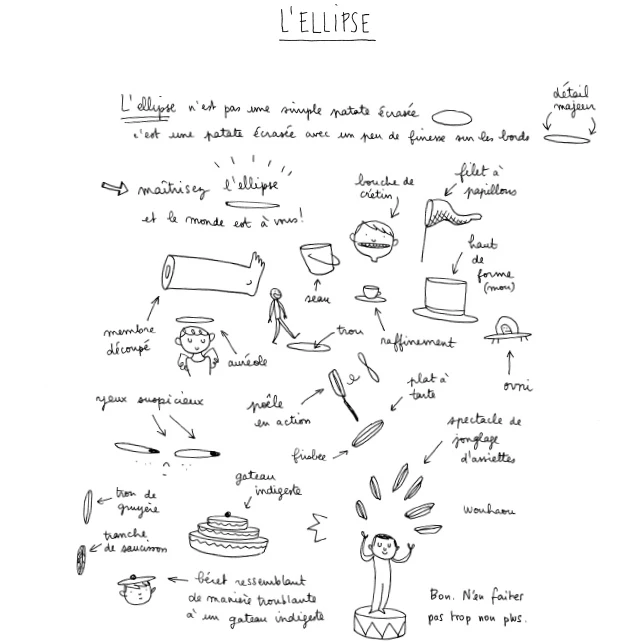 L'ELLIPSE
L'ellipse n'est pas une simple patate écrasée
c'est une patate écrasée avec un peu de finesse sur les bords
détail
majeur
maîtrisez l'ellipse
et le monde est à vous!
bouche de
crétin
filet à
papillons
haut
de
forme
(mou)
seau
membre
découpé
auréole
trou
raffinement
ovni
yeux suspicieux
poêle
en action
plat à
tarte
frisbee
spectacle de
jonglage
d'assiettes
gateau
indigeste
trou de
gruyère
wouhaou
tranche
de saucisson
béret ressemblant
de manière troublante
à un gateau indigeste
Bon. N'en faites
pas trop non plus.